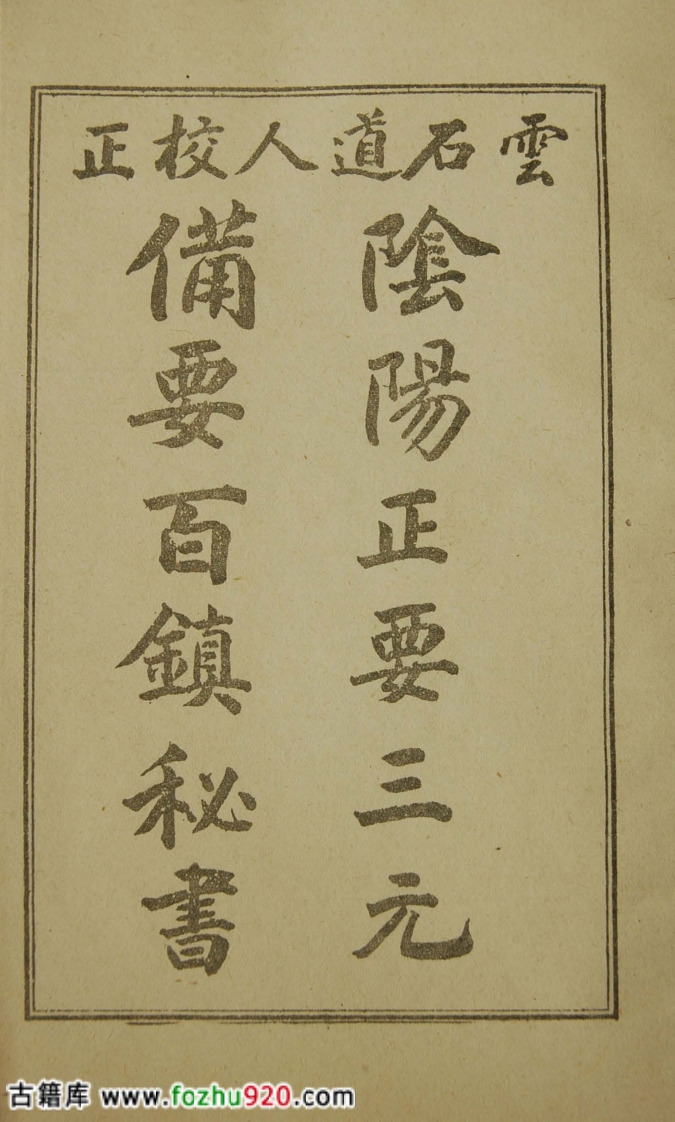 雲石道人校正
陰陽正要三元
備要百鎮秘書
古籍库 www.fozhu920.com